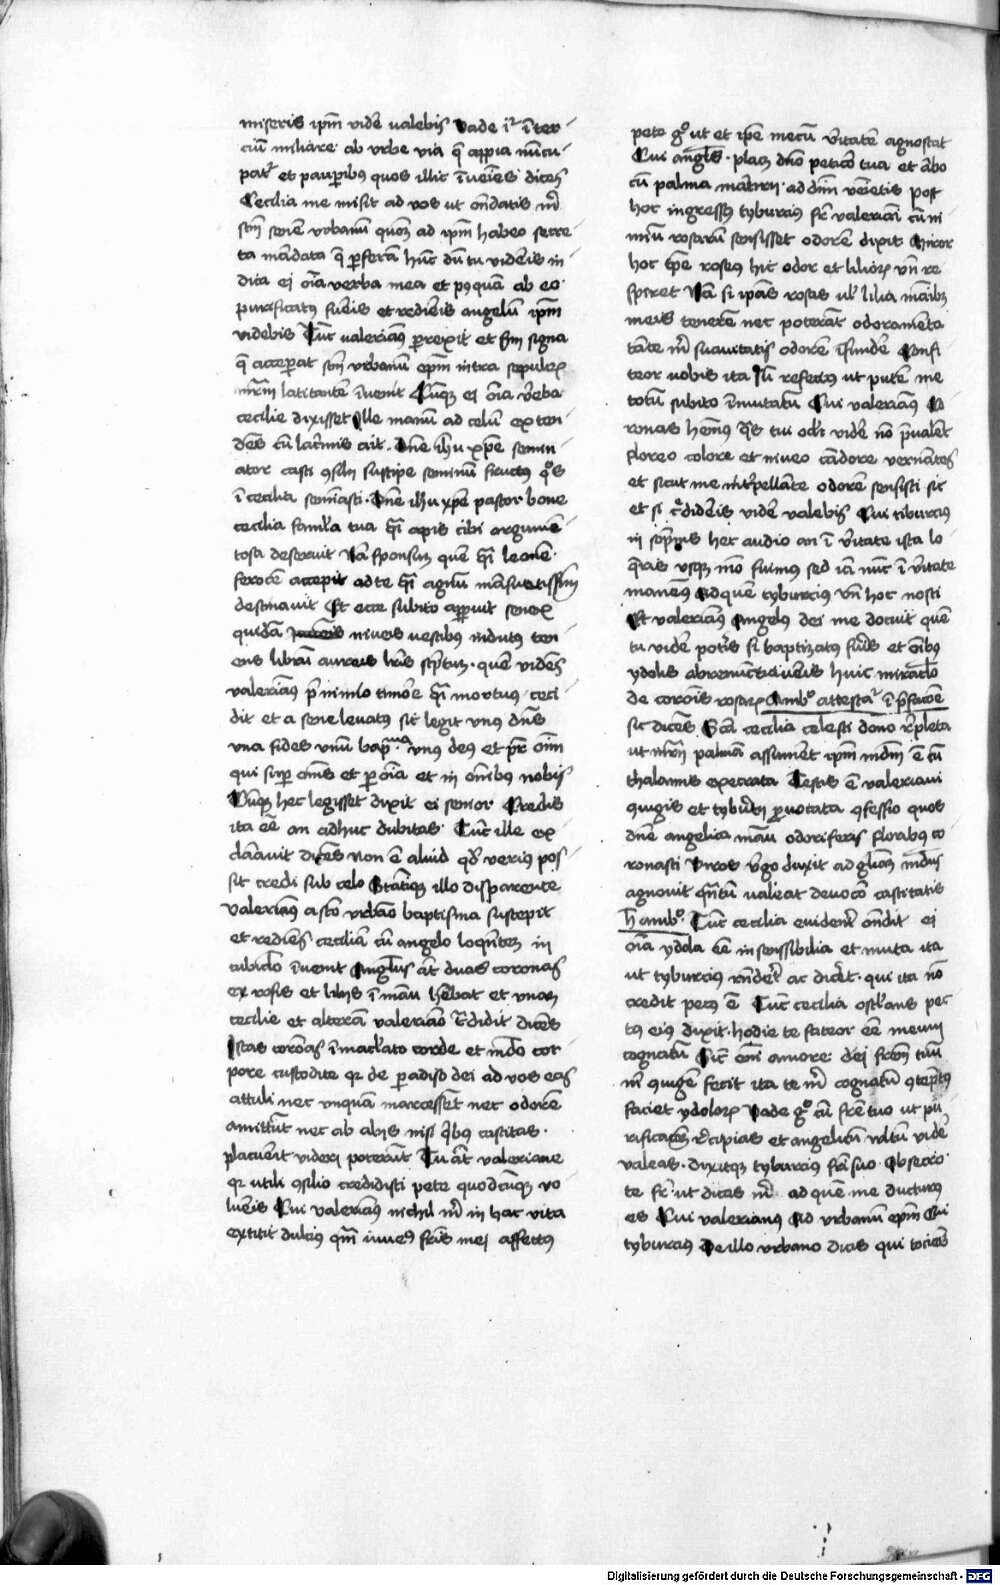 miseris ip̄m videre ualebis Vade ig̅ i̅ ter
ciū miliare ab vrbe via q̄ appia nūcu
pat᷑ et paup̄ibus quos illic i̅uēies dices
Cecilia me misit ad vos ut ondatis m̄
sc̄m senē vrbanū quoniā ad ip̄m habeo secre
ta mādata q̄ p̄ferā hūc dū tu videris in
dica ei oīa verba mea et p9quā ab eo
purificatus fueris et redieris angelū ip̄m
videbis Tūc valerian9 p̄rexit et scdm signa
q̄ acceperat sc̄m vrbanū ep̄m intra sepulcra
mr̄m latitantē i̅uenit Cūq3 ei oīa v̄ba
cecilie dixisset Ille manū ad celū exten
dēs cū lac̄mis ait Dn̄e ih̄u xp̄e semin
ator casti 9silii suscipe seminū fructus q̄s
i̅ cecilia semiasti Dn̄e ih̄u xp̄e pastor bone
cecilia famla tua q̄si apis tibi argumē
tosa deseruit Nā sponsum quē q̄si leonē
ferocē accepit ad te q̄si agnū māsuetissim
destinauit Et ecce subito apparuit senex
quidā niueis uestibus indutus ten
ens librū aureis lr̄is sc̄ptum quē videns
valerian9 p̄ nimio timore q̄si mortuus ceci
dit et a sene leuatus sic legit vnus dn̄s
vna fides vnū bap̄ma vnus deus et pr̄ oīm
qui sup̄ om̄s et p̄ oīa et in om̄ibus nobis
Cūq3 hec legisset dixit ei senior Credis
ita eē̄ an adhuc dubitas Tūc ille ex
clamauit dicēs non ē aliud qd̄ verius pos
sit credi sub celo Statimq3 illo disparente
Valerian9 a sc̄o vrbāo baptisma suscepit
et rediens ceciliā cū angelo loquētem in
cubiclo i̅uenit Angelus āt duas coronas
ex rosis et liliis i̅ manu hēbat et vnam
cecilie et alterā valeriāo t̄didit dicēs
Istas coronas i̅maclato corde et mūdo cor
pore custodite q̄ de padiso dei ad vos eas
attuli nec vnquā marcessent nec odorē
amittūt nec ab aliis nisi q̄bus castitas
placuerit videri poterūt Tu āt valeriane
q̄ utili 9silio credidisti pete quodcūq3 vo
lueris Cui valerian9 nichil m̄ in hac vita
extitit dulcius q̄m unicus fr̄is mei affectus
pete g̊ ut et ip̄e mecū v̄itatē agnoscat
Cui angl̄s placꝫ dn̄o peticō tua et ābo
cū palma martirii ad dnm venietis post
hoc ingressus tyburcius fr̄ valeriani cū ni
miū rosarū sensisset odorē dixit Miror
hoc tp̄e roseus hic odor et lilioꝝ vn̄ re
spiret Nā si ip̄as rosas ul̄ lilia in māibus
meis tenerem nec poterāt odoramēta
tāte m̄ suauitatis odorē i̅fundere Confi
teor uobis ita sū refectus ut putē me
totū subito i̅mutatū Cui valerian9 Co
ronas hēmus q̄s tui oc̄li videre nō p̄ualent
floreo colore et niueo cādore vernātes
et sicut me int̄pellāte odorē sensisti sic
et si c̄dideris videre valebis Cui tiburcius
in sōpnis hec audio an i̅ v̄itate ista lo
q̄ris vsq3 mō fuimus sed iā nūc i̅ v̄itate
maneus Ad quē tyburcius vn̄ hoc nosti
Et valerian9 Angelus dei me docuit quē
tu videre pot̄is si baptizatus fueris et om̄ibus
ydolis abrenunciaueris huic miraclo
de corōis rosaꝝ Amb̊ attestat᷑ i̅ p̄facōe
sic dicēs Scā cecilia celesti dono r̄pleta
ut mr̄ii palmā assumeret ip̄m mdm̄ ē cū
thalamis execrata Testis ē valeriani
9iugis et tyburtii ꝓuocata 9fessio quos
dnē angelica manu odoriferis floribus co
ronasti Viros v̄go duxit ad gl̄iam mūdus
agnouit q̄ntū valeat deuocō castitatis
h̄ amb̊ Tūc cecilia euident̄ ondit ei
oīa ydola eē̄ insensibilia et muta ita
ut tyburcius rn̄deret ac diceret qui ita nō
credit pecus ē Tūc cecilia osclans pec
tus eius dixit hodie te fateor eē̄ meum
cognatū Sic̄ eni amore dei fr̄em tuū
m̄ 9iugem fecit ita te m̄ cognatū 9tēptus
faciet ydoloꝝ Vade g̊ cū fr̄e tuo ut pu
rificacōem recipias et angelicū vultū videre
valeas dixitq3 tyburcius fr̄i suo Obsecro
te fr̄ ut dicas m̄ ad quē me ducturus
es Cui valerianus Ad vrbanū ep̄m Cui
tyburcius De illo vrbano dicis qui tociens